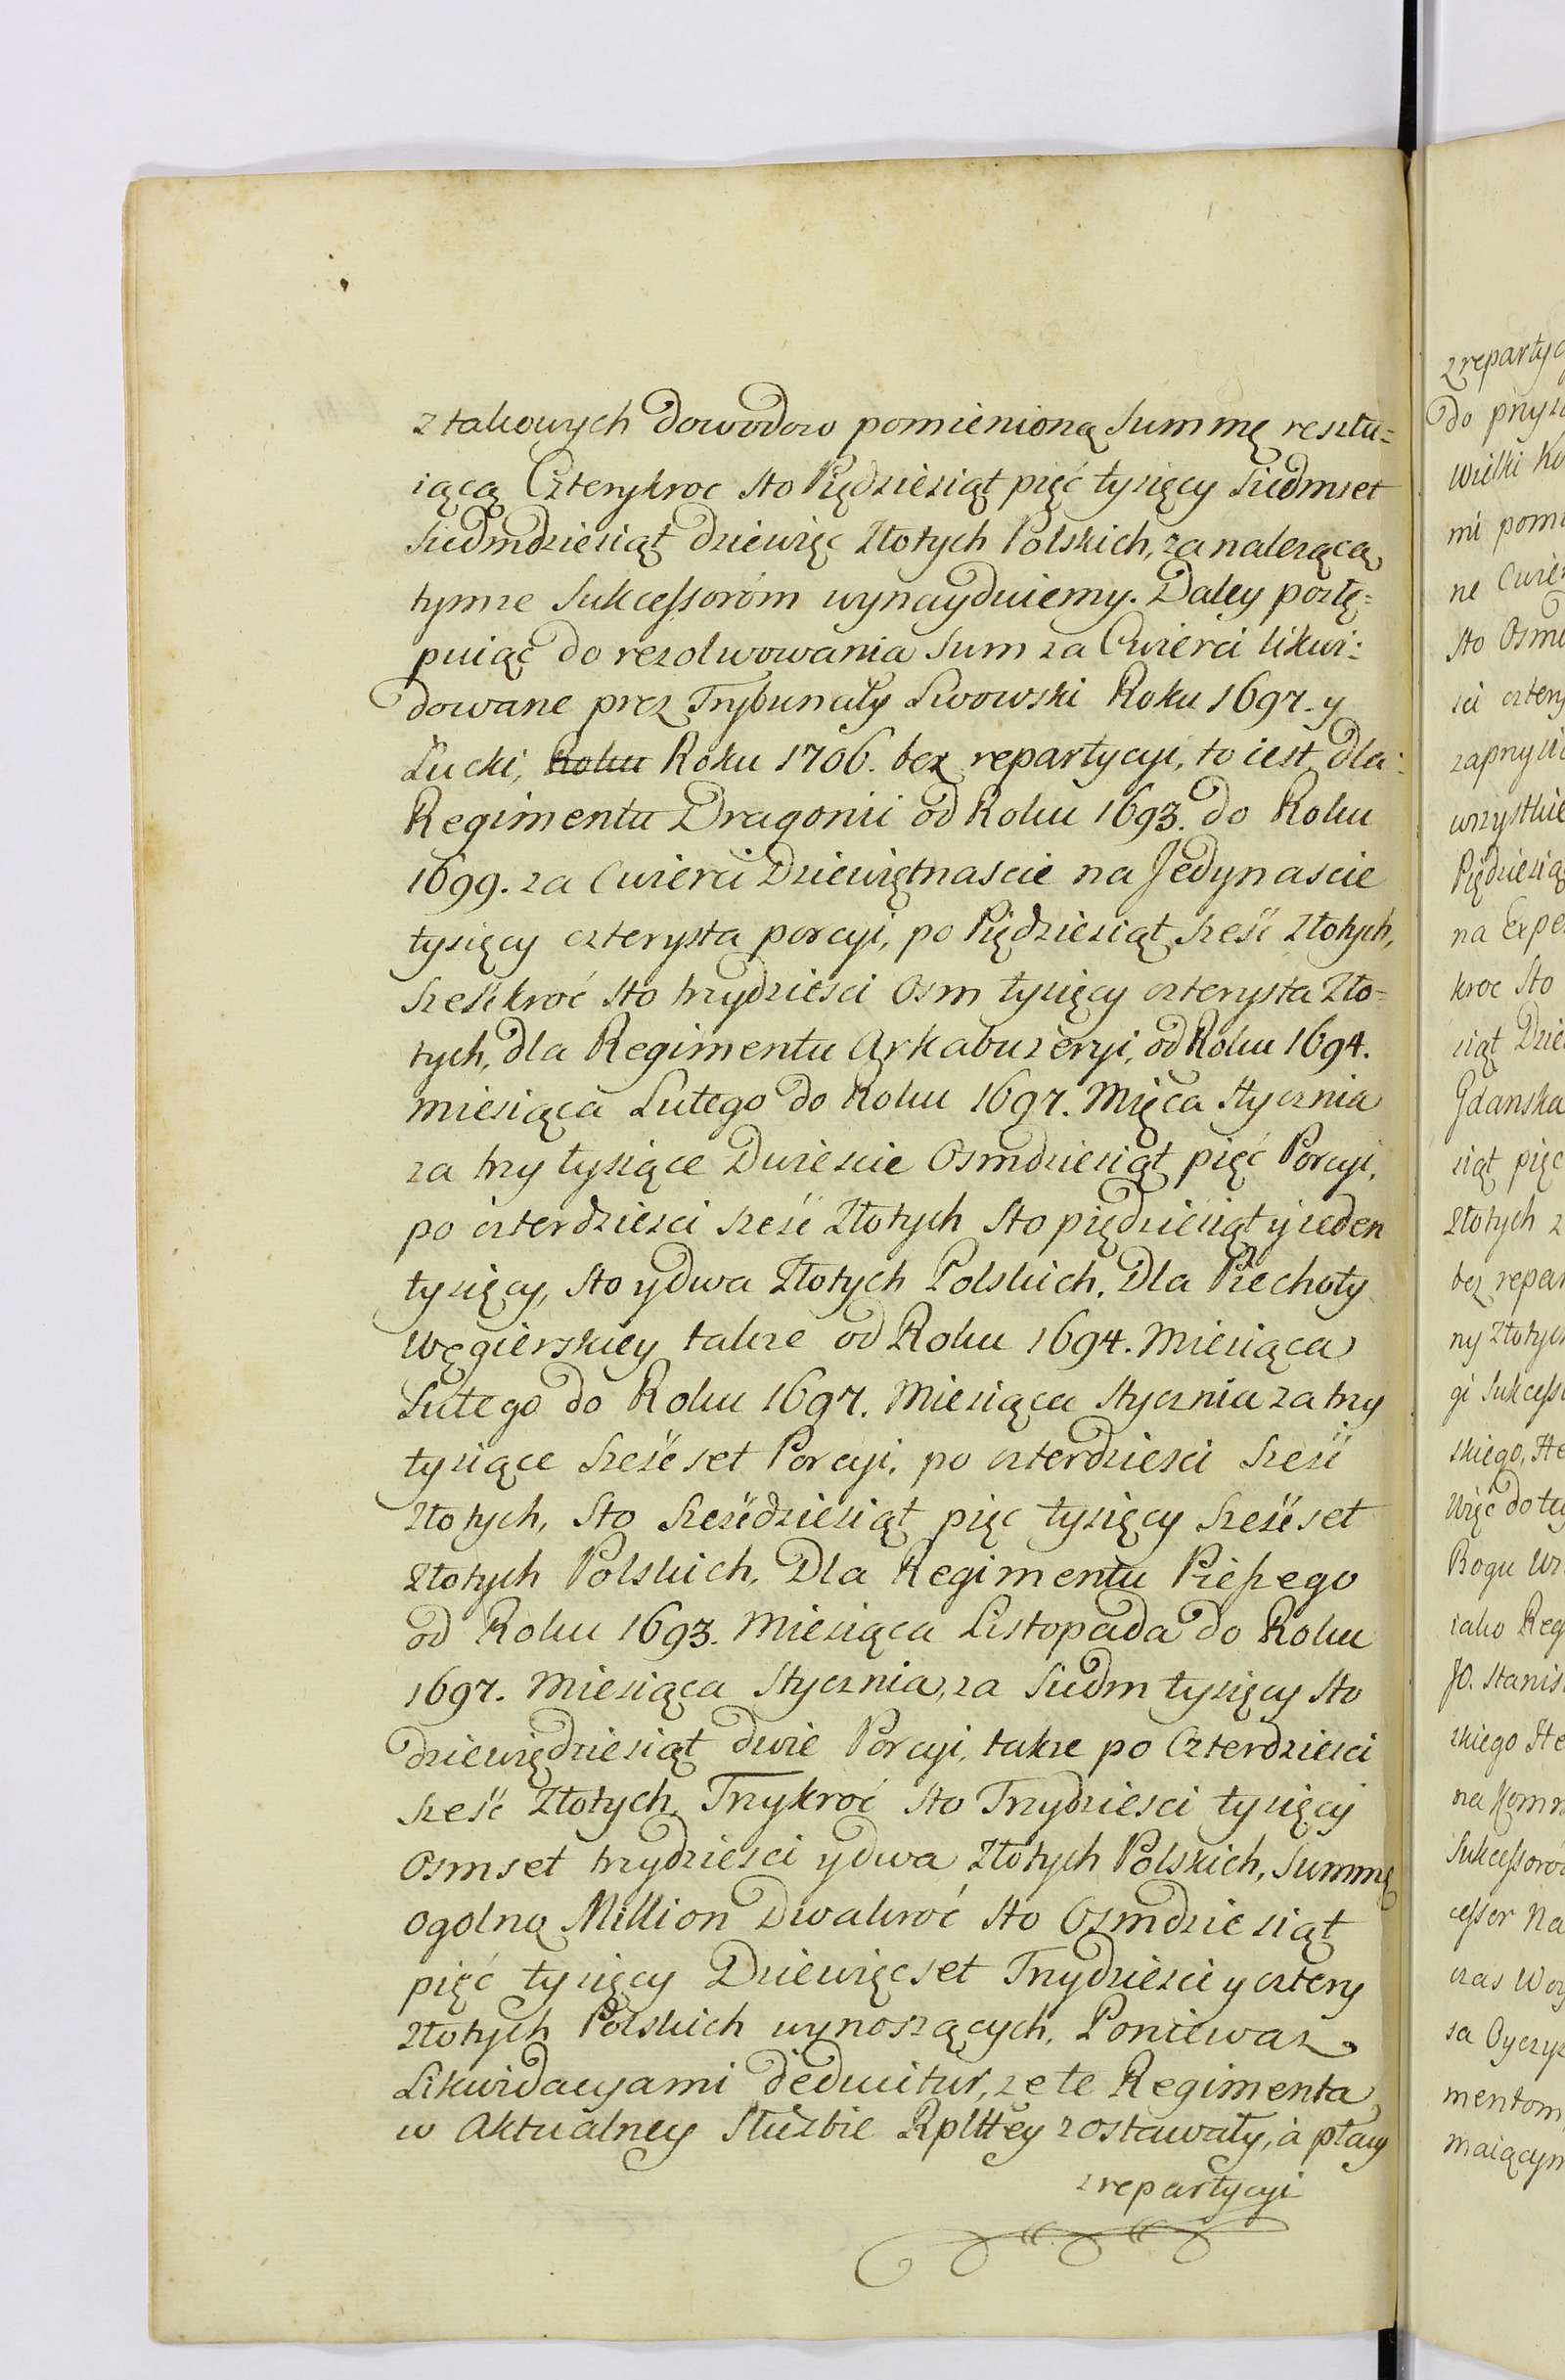 z takowych dowodow pomienioną Summę resztu=
iącą Czterykroc sto Piędziesiąt pięć tysięcy Siedmset
Siedmdziesiąt dziewięc Złotych Polskich, za nalezącą
tymze Sukcessoróm wynayduiemy. Daley postę=
puiąc do rezolwowania Sum za Cwierci likwi=
dowane prez Trybunały Lwowski Roku 1697. y
Łucki, Roku Roku 1706. bez repartycyi, to iest dla
Regimentu Dragonii od Roku 1693. do Roku
1699. za Cwierci Dziewiętnascie na Jedynascie
tysięcy czterysta porcyi, po Piędziesiąt sześć Złotych,
sześćkroć sto trzydziesci Osm tysięcy czterysta Zło=
tych, dla Regimentu Arkabuzeryi, od Roku 1694.
miesiąca Lutego do Roku 1697. Mięca Stycznia
za trzy tysiące Dwiescie Osmdziesiąt pięć Porcyi,
po czterdziesci sześć Złotych Sto piędziesiąt y ieden
tysięcy, sto y dwa Złotych Polskich. Dla Piechoty
Węgierskiey takze od Roku 1694. Miesiąca
Lutego do Roku 1697. Miesiąca Stycznia za trzy
tysiące sześćset Porcyi, po czterdziesci sześć
Złotych, Sto sześćdziesiąt pięc tysięcy sześćset
Złotych Polskich, Dla Regimentu Pieszego
od Roku 1693. Miesiąca Listopada do Roku
1697. Miesiąca Stycznia, za Siedm tysięcy sto
dziewiędziesiąt dwie Porcyi, takze po Czterdziesci
sześć Złotych, Trzykroć sto Trzydziesci tysięcy
Osmset trzydziesci y dwa Złotych Polskich, Summę
ogolną Million Dwakroć sto Osmdziesiąt
pięć tysięcy Dziewięcset Trzydziesci y cztery
Złotych Polskich wynoszących. Poniewaz
Likwidacyami deducitur, ze te Regimenta
w Aktualney Słuzbie Rplttey zostawały, à płacy
z repartycyi
z repartyc
do przysz
Wielki Ko
mi pomi
ne Cwier
sto Osmd
sci cztery
zaprzysię
wszystkie
Piędziesią
na Expe
kroc sto
siąt Dzie
Gdanska
siąt pięc
Złotych z
bez repar
ny Złotych
gi Sukcess
skiego, He
Więc do tey
Rogu Wi
iako Reg
JO. Stanis
skiego He
na Komm
Sukcessorow
cessor Na
czas Woy
sa Oyczyz
mentom
maiącym